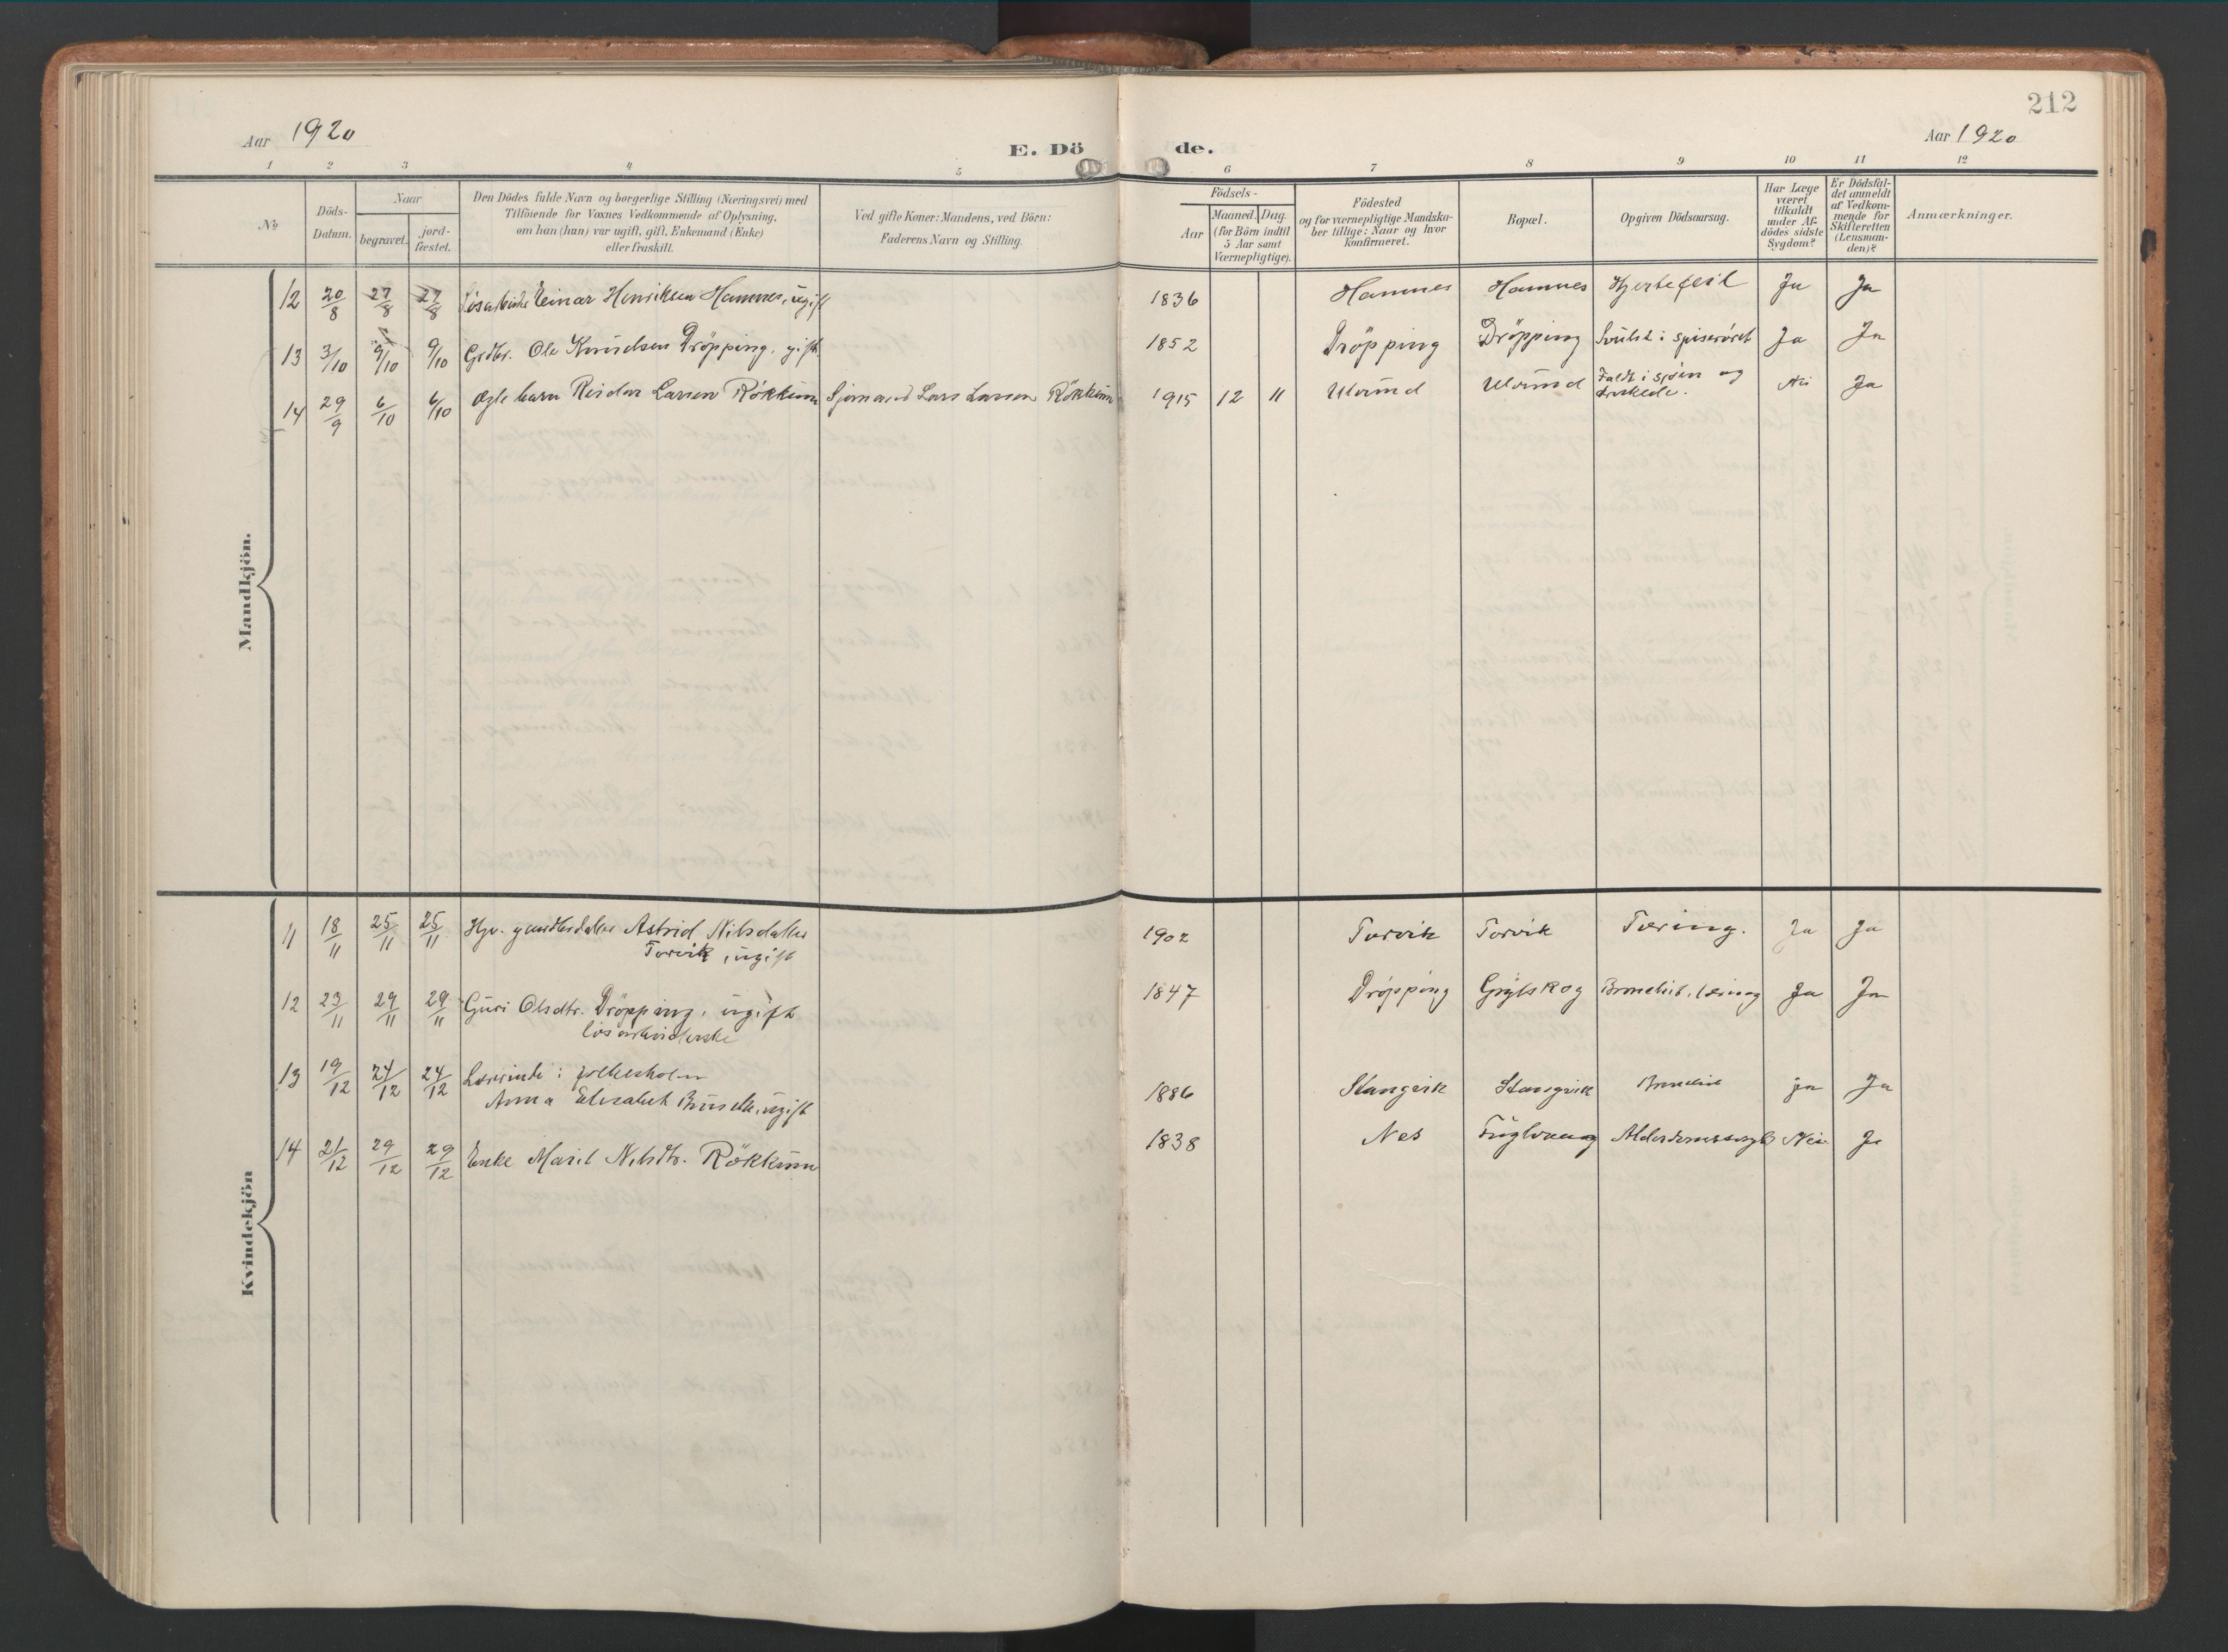 212
Aar 1920
E. Dö de.
Aar 1920
1 2 3 4 5 6 7 8 9 10 11 12
No
Döds-
Datum.
Naar
begravet.
jord-
fæstet.
Den Dödes fulde Navn og borgerlige Stilling (Næringsvei) med
Tilföiende for Voxnes Vedkommende af Oplysning.
om han (hun) var ugift, gift, Enkemand (Enke)
eller fraskilt.
Ved gifte Koner: Mandens, ved Börn:
Faderens Navn og Stilling.
Födsels-
Aar
Maaned. Dag.
(for Börn indtil
5 Aar samt
Værnepligtige).
Födested
og for værnepligtige Mandska-
ber tillige: Naar og hvor
konfirmeret.
Bopæl.
Opgiven Dödsaarsag.
Har Læge
været
tilkaldt
under Af-
dödes sidste
Sygdom?
Er Dödsfal-
det anmeldt
af Vedkom-
mende for
Skifteretten
(Lensman-
den)?
Anmærkninger.
Mandkjön.
12 20/8 27/8 27/8 Einar Henriksen Hamnes, ugift 1836 Hamnes Hamnes Hjertefeil Ja Ja
13 3/10 9/10 9/10 Grdbr. Ole Knudsen Dröpping, gift 1852 Dröpping Dröpping Svulst i spiserøret Ja Ja
14 29/9 6/10 6/10 Ægte barn Reidar Larsen Røkkum Sjømand Lars Larsen Røkkum 1915 12 11 Ulvund Ulvund Faldt i sjøen og
druknede. Nei Ja
Kvindekjön
11 18/11 25/11 25/11 Astrid Nilsdatter
Torvik, ugift 1902 Torvik Torvik Tæring. Ja Ja
12 23/11 29/11 29/11 Guri Olsdtr. Dröpping, ugift
løsarbeiderske 1847 Dröpping Grytskog Ja Ja
13 19/12 24/12 24/12 Lærerinde i folkeskolen
Anna Elisabeth ugift 1886 Stangvik Stangvik ja Ja
14 21/12 29/12 29/12 Enke Marit Nilsdtr. Røkkum 1838 Nes Fuglvaag Nei Ja